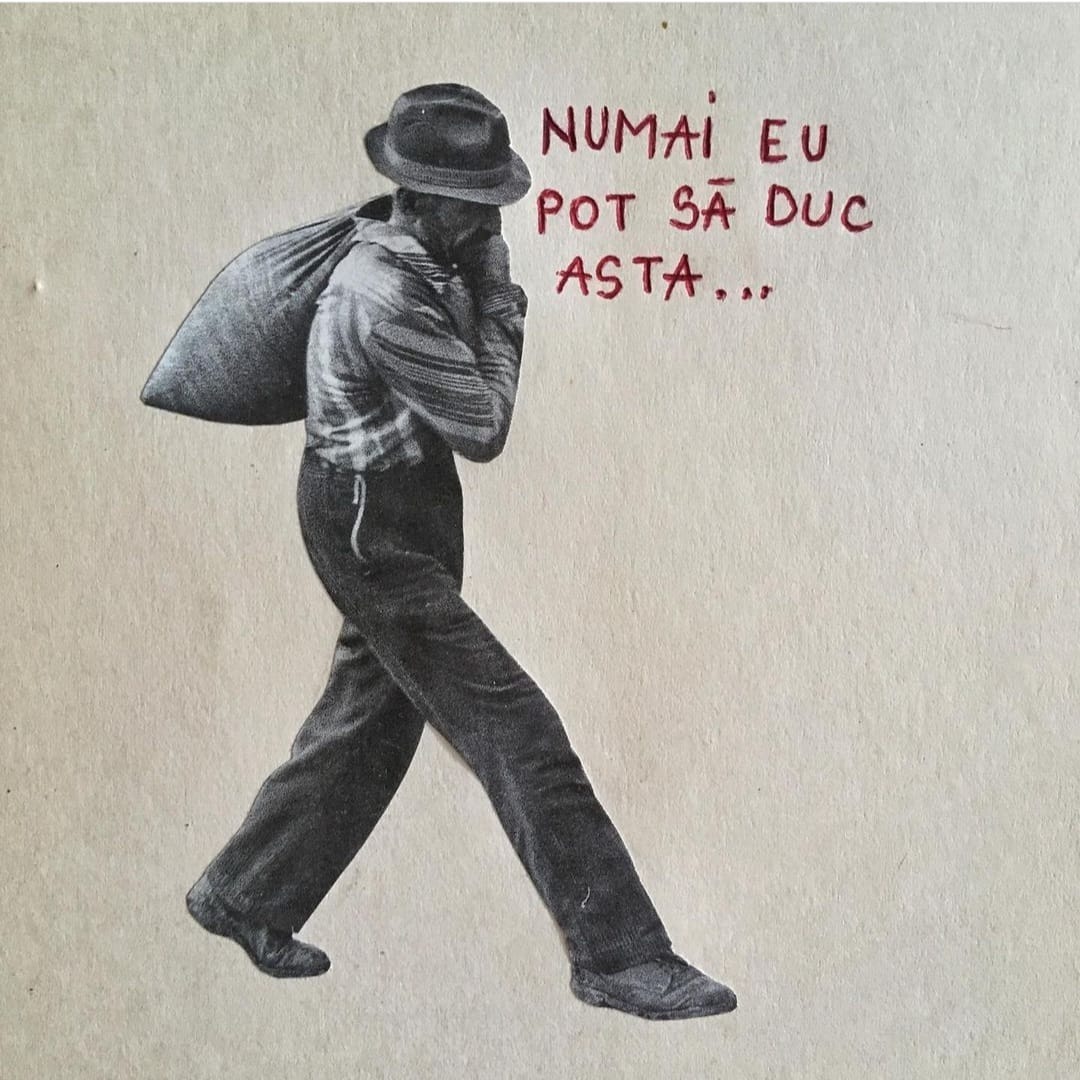 NUMAI EU
POT SĂ DUC
ASTA...